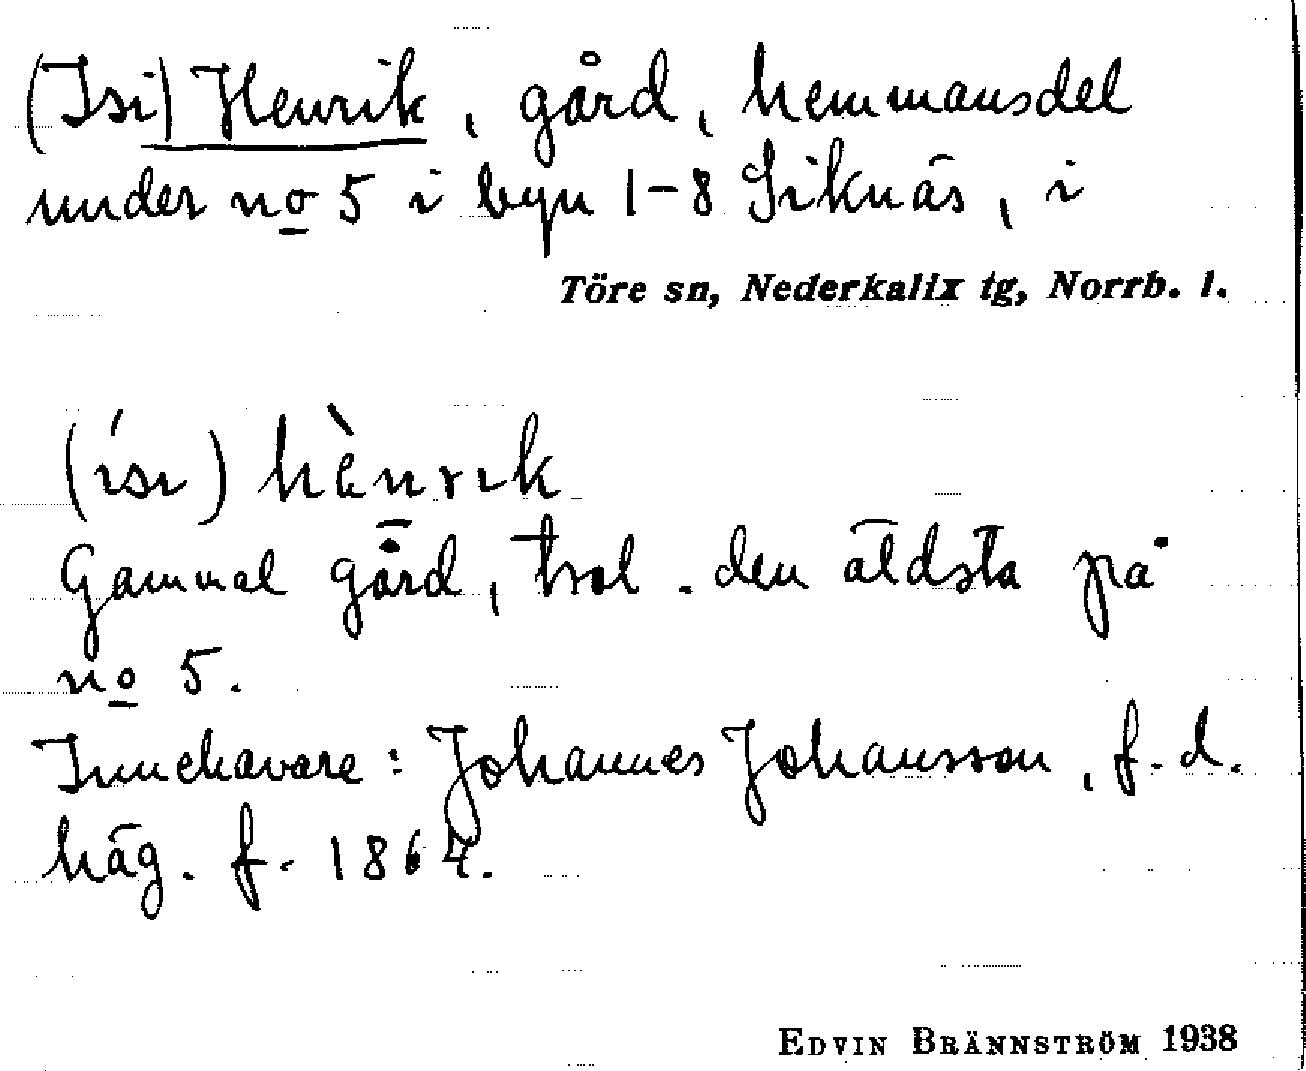 (Isi) Henrik, gård, hemmansdel
under no 5 i byn 1-8 Siknäs, i
Töre sn, Nederkalix tg, Norrb. l.
(ísı) hènrık
Gammal gård, trol. den äldsta på
no 5.
Innehavare: Johannes Johansson, f.d.
häg. f. 1864.
EDVIN BRÄNNSTRÖM 1938